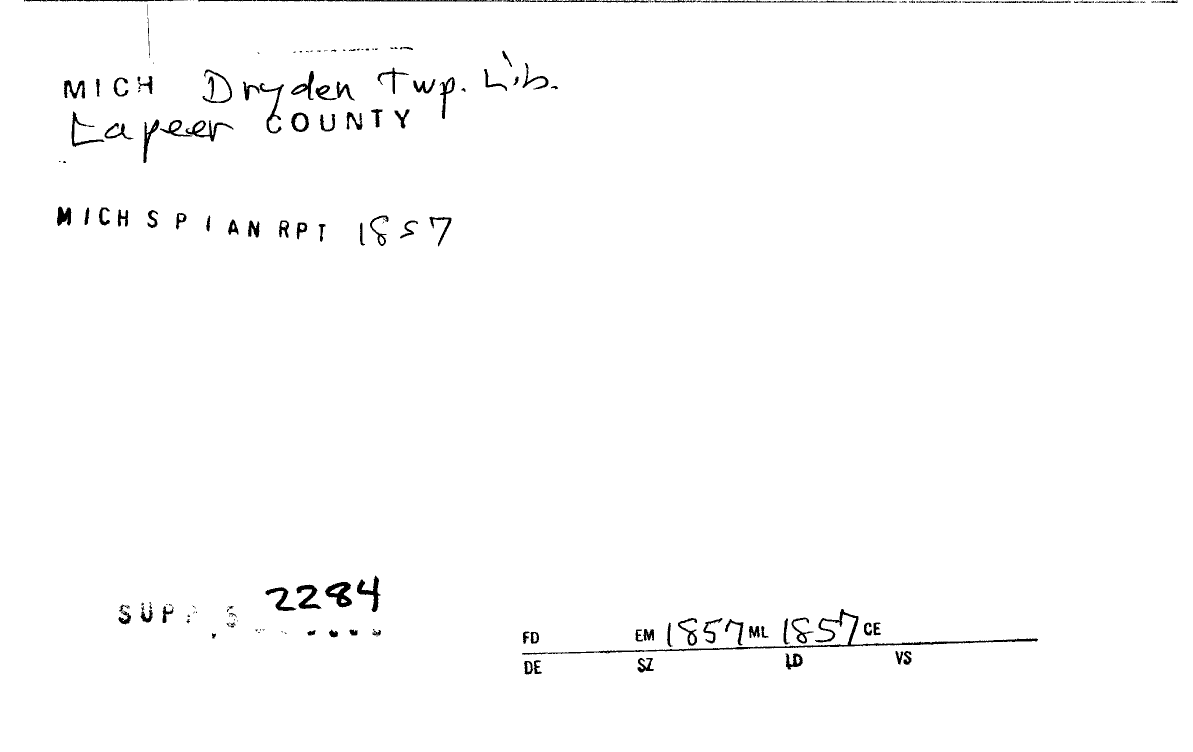 MICH Dryden Twp. Lib.
Lapeer COUNTY
MICH S P I AN RPT 1857
2284
FD EM 1857 ML 1857 CE
DE SZ LD VS